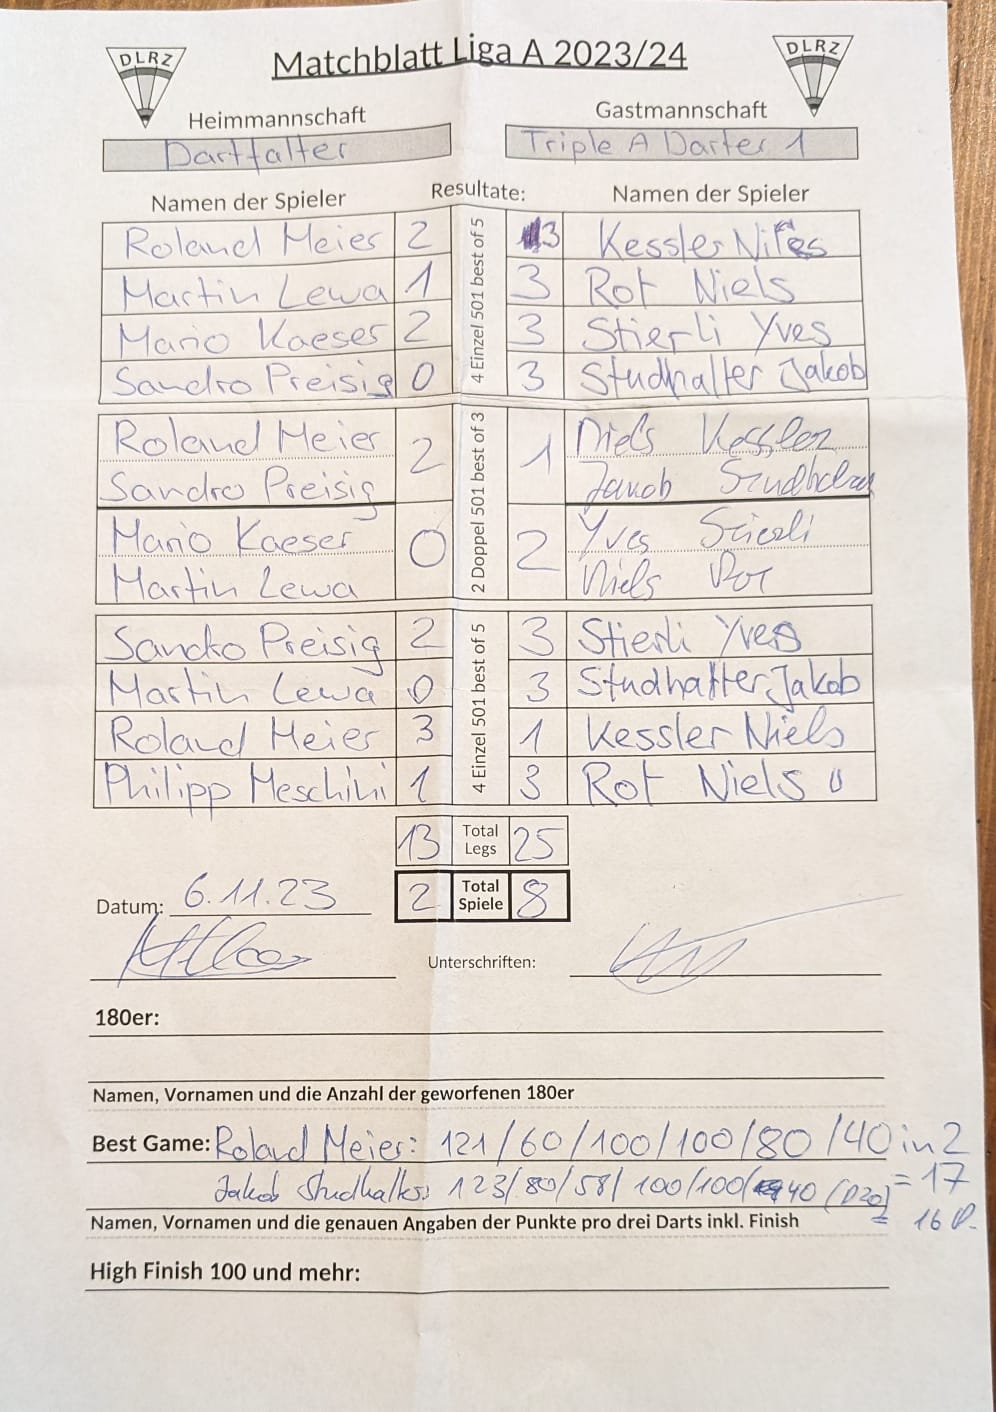 DLRZ Matchblatt Liga A 2023/24 DLRZ
Heimmannschaft Gastmannschaft
Dartfalter Triple A Darter 1
Namen der Spieler Resultate: Namen der Spieler
4 Einzel 501 best of 5
Roland Meier 2 3 Kessler Niles
Martin Lewa 1 3 Rot Niels
Mario Kaeser 2 3 Stierli Yves
Sandro Preisig 0 3 Studhalter Jakob
2 Doppel 501 best of 3
Roland Meier 2 1 Niels Kessler
Sandro Preisig Jakob
Mario Kaeser 0 2 Yves Stierli
Martin Lewa Niels Rot
4 Einzel 501 best of 5
Sandro Preisig 2 3 Stierli Yves
Martin Lewa 0 3 Studhalter Jakob
Roland Meier 3 1 Kessler Niels
Philipp Meschini 1 3 Rot Niels
13 Total Legs 25
Datum: 6.11.23 2 Total Spiele 8
Unterschriften:
180er:
Namen, Vornamen und die Anzahl der geworfenen 180er
Best Game: Roland Meier: 121/60/100/100/80/40 in 2
= 17
Jakob Studhalter: 123/80/58/100/100/40 (D20)
= 16 D.
Namen, Vornamen und die genauen Angaben der Punkte pro drei Darts inkl. Finish
High Finish 100 und mehr: